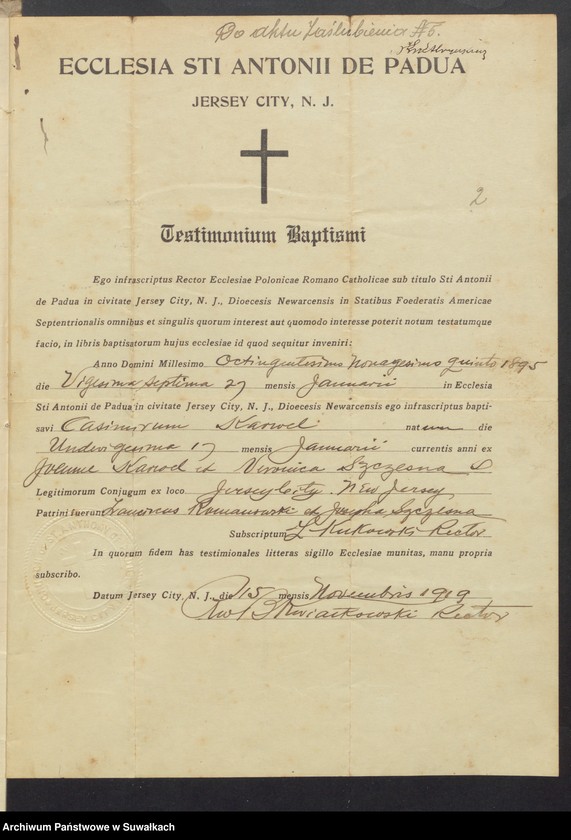 Do aktu Zaślubienia № 6.
ECCLESIA STI ANTONII DE PADUA
JERSEY CITY, N. J.
2
Testimonium Baptismi
Ego infrascriptus Rector Ecclesiae Polonicae Romano Catholicae sub titulo Sti Antonii
de Padua in civitate Jersey City, N. J., Dioecesis Newarcensis in Statibus Foederatis Americae
Septentrionalis omnibus et singulis quorum interest aut quomodo interesse poterit notum testatumque
facio, in libris baptisatorum hujus ecclesiae id quod sequitur inveniri:
Anno Domini Millesimo Octingentesimo Nonagesimo quinto 1895
die Vigesima septima 27 mensis Januarii in Ecclesia
Sti Antonii de Padua in civitate Jersey City, N. J., Dioecesis Newarcensis ego infrascriptus bapti-
savi Casimirum Karwel natum die
17 mensis Januarii currentis anni ex
Joanne Karwel et Veronica Szczesna
Legitimorum Conjugum ex loco Jersey City. New Jersey
Patrini fuerunt Franciscus Romanowski et Josepha Szczesna
Subscriptum Kukowski Rector
In quorum fidem has testimoniales litteras sigillo Ecclesiae munitas, manu propria
subscribo.
Datum Jersey City, N. J., die 15 mensis Novembris 1919
Kwiatkowski Rector
Archiwum Państwowe w Suwałkach